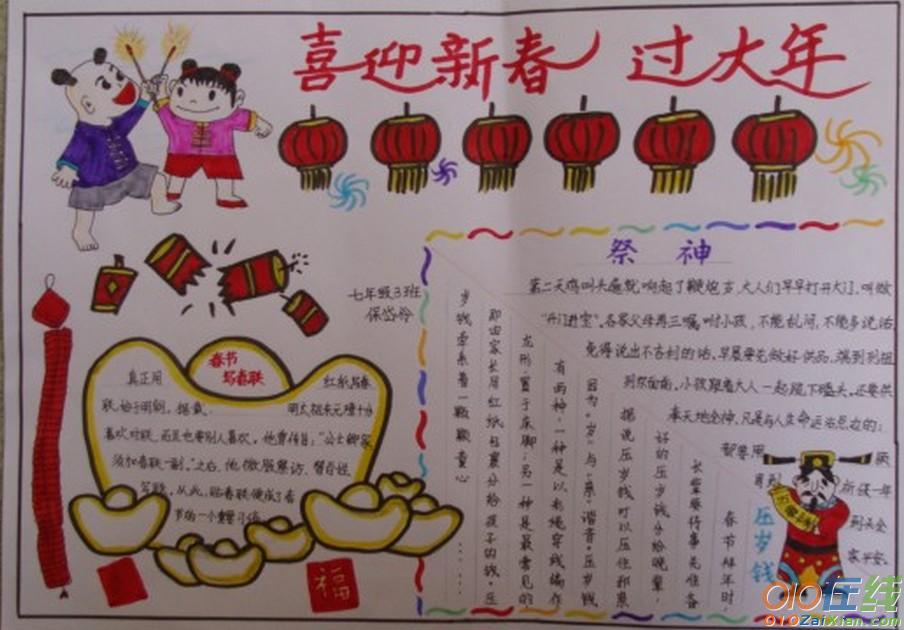 喜迎新春 过大年
七年级3班
春节
写春联
真正用 红纸写春
联,始于明朝,据载, 明太祖朱元璋十分
喜欢对联,而且也要别人喜欢,他曾传旨:"公士卿家
须加春联一副。"之后,他微服察访,督百姓
写联,从此,贴春联便成了春
节的一个重要习俗
福
祭 神
第二天鸡叫头遍就响起了鞭炮声,大人们早早打开大门,叫做
"开门进宝"。各家父母再三嘱咐小孩,不能乱问,不能多说话,
免得说出不吉利的话,早晨要先做好供品,端到列祖
小孩跟着大人一起跪下磕头。还要供
奉天地全神,凡是与人生命运
都要用
新候一年
到头全
家平安。
压岁钱
春节拜年时,
长辈要将事先准备
好的压岁钱分给晚辈,
据说压岁钱可以压住邪祟
因为"岁"与"祟"谐音。压岁钱
有两种,一种是以彩绳穿线编作
龙形,置于床脚;另一种是最常见的
即由家长用红纸包裹分给孩子的钱。压
岁钱牵系着一颗颗童心......
010在线
010ZaiXian.com